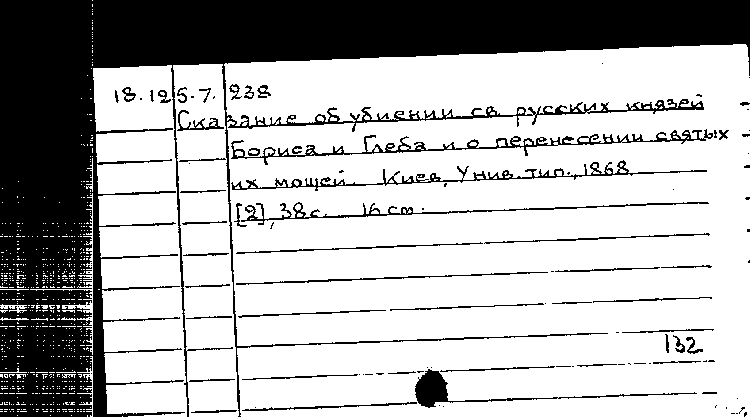 18.12 5.7. 238
Сказание об убиении св. русских князей
Бориса и Глеба и о перенесении святых
их мощей. Киев, Унив. тип., 1868.
[2], 38 с. 16 см.
132